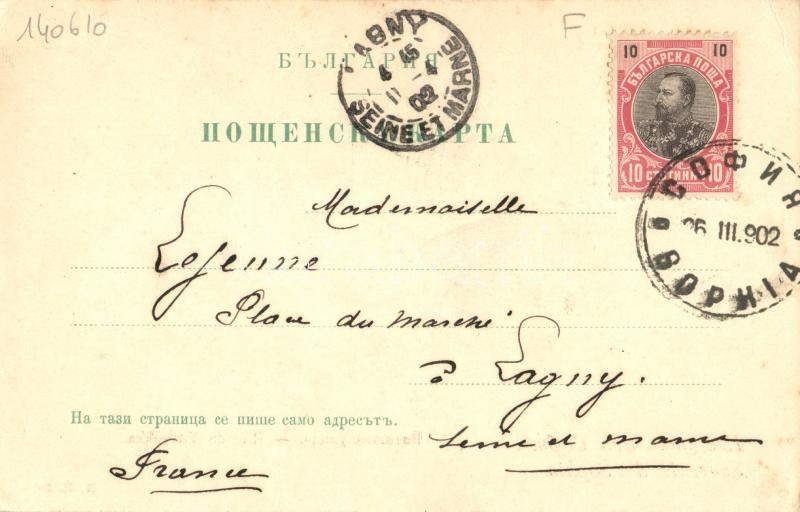 140610
F
БЪЛГАРИЯ
ПОЩЕНСКА КАРТА
LAGNY
SEINE ET MARNE
02
10 10
БЪЛГАРСКА ПОЩА
10 СТОТИНКИ 10
СОФИЯ
26 III.902
SOPHIA
Mademoiselle
Lejeune
Place du Marché
à Lagny.
Seine et Marne
На тази страница се пише само адресътъ.
France